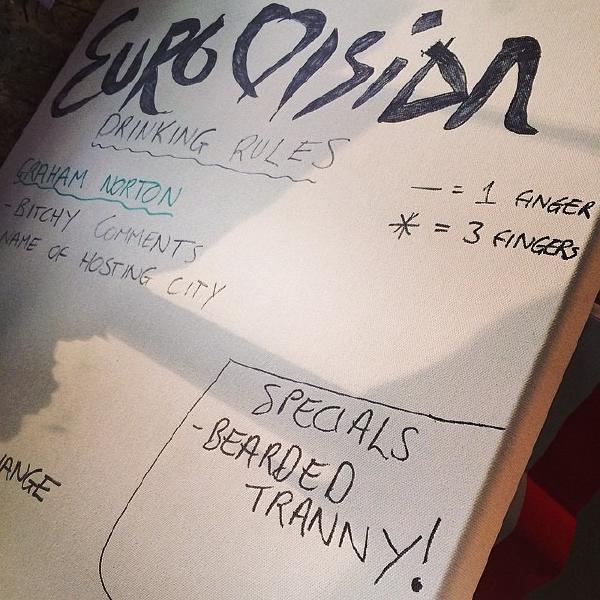 EUROVISION
DRINKING RULES
GRAHAM NORTON
- BITCHY COMMENTS
NAME OF HOSTING CITY
— = 1 FINGER
* = 3 FINGERS
SPECIALS
- BEARDED
TRANNY!
ANGE